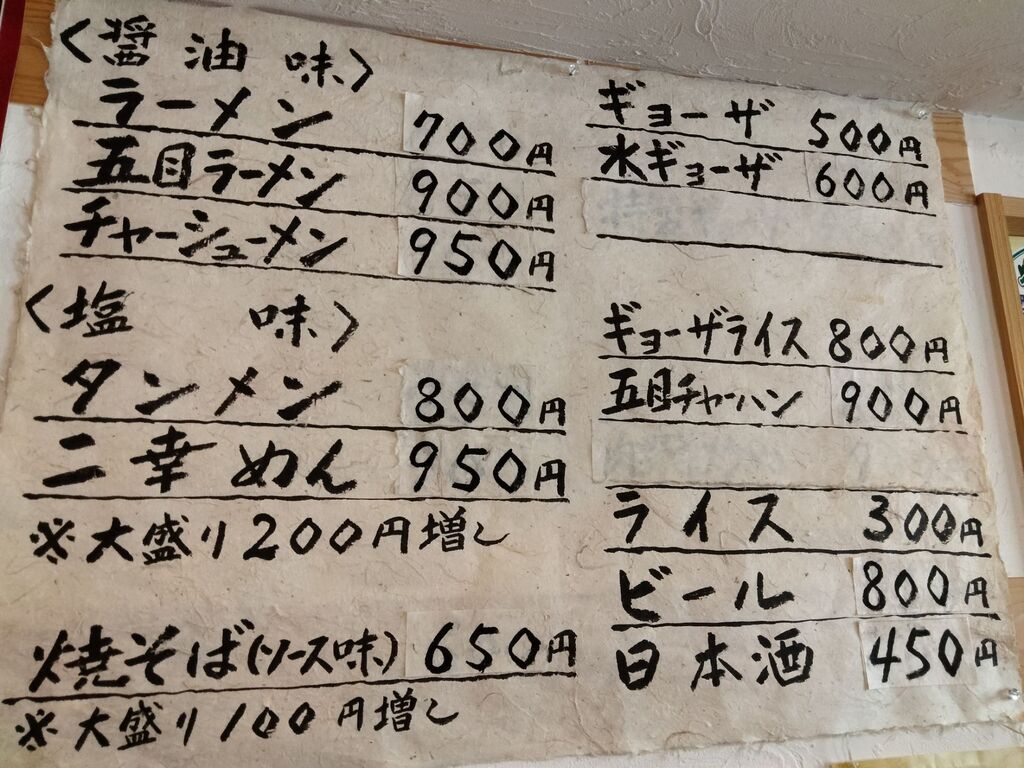 〈醤油味〉
ラーメン 700円
五目ラーメン 900円
チャーシューメン 950円
〈塩味〉
タンメン 800円
二幸めん 950円
※大盛り200円増し
焼そば(ソース味) 650円
※大盛り100円増し
ギョーザ 500円
水ギョーザ 600円
ギョーザライス 800円
五目チャーハン 900円
ライス 300円
ビール 800円
日本酒 450円